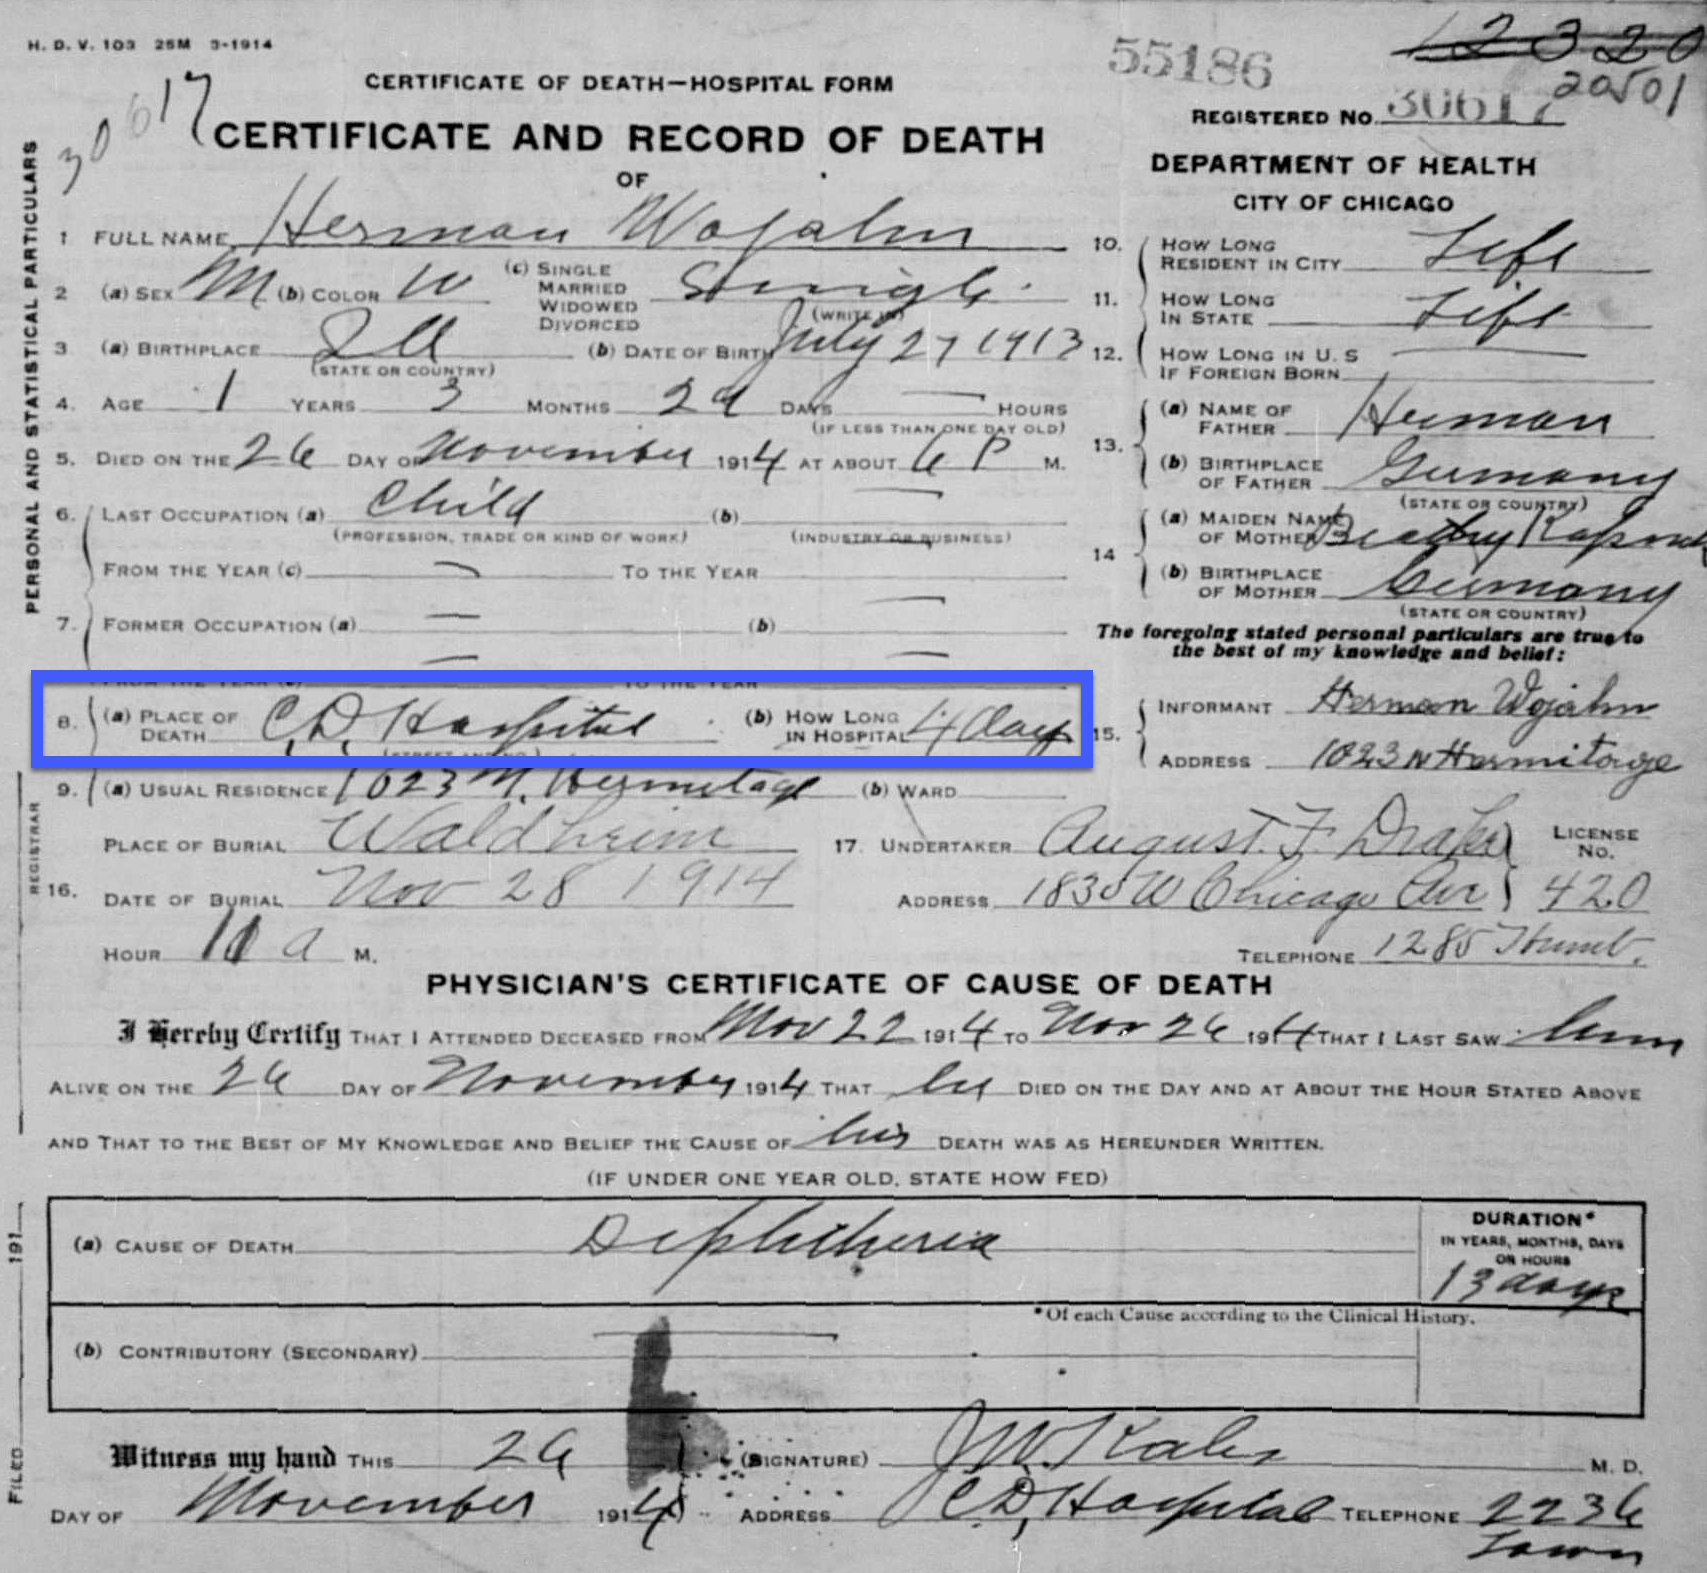 H. D. V. 103 25M 3-1914
55186
12320
20501
30617
CERTIFICATE OF DEATH—HOSPITAL FORM
REGISTERED NO. 30617
CERTIFICATE AND RECORD OF DEATH
OF
DEPARTMENT OF HEALTH
CITY OF CHICAGO
PERSONAL AND STATISTICAL PARTICULARS
1 FULL NAME Herman Wojahn
2 (a) SEX M (b) COLOR W (c) SINGLE MARRIED WIDOWED DIVORCED Single
(WRITE IN)
3 (a) BIRTHPLACE Ill (b) DATE OF BIRTH July 27 1913
(STATE OR COUNTRY)
4. AGE 1 YEARS 3 MONTHS 29 DAYS — HOURS
(IF LESS THAN ONE DAY OLD)
5. DIED ON THE 26 DAY OF November 1914 AT ABOUT 6 P M.
6. LAST OCCUPATION (a) Child (b) —
(PROFESSION, TRADE OR KIND OF WORK) (INDUSTRY OR BUSINESS)
FROM THE YEAR (c) — TO THE YEAR —
7. FORMER OCCUPATION (a) — (b) —
FROM THE YEAR (c) — TO THE YEAR —
8. (a) PLACE OF DEATH C.D. Hospital (b) HOW LONG IN HOSPITAL 4 days
(STREET AND NO.)
9. (a) USUAL RESIDENCE 1023 N. Hermitage (b) WARD
10. HOW LONG RESIDENT IN CITY Life
11. HOW LONG IN STATE Life
12. HOW LONG IN U. S IF FOREIGN BORN —
13. (a) NAME OF FATHER Herman
(b) BIRTHPLACE OF FATHER Germany
(STATE OR COUNTRY)
14 (a) MAIDEN NAME OF MOTHER
(b) BIRTHPLACE OF MOTHER Germany
(STATE OR COUNTRY)
The foregoing stated personal particulars are true to
the best of my knowledge and belief:
15. INFORMANT Herman Wojahn
ADDRESS 1023 N Hermitage
REGISTRAR
16. PLACE OF BURIAL Waldheim
DATE OF BURIAL Nov 28 1914
HOUR 10 a M.
17. UNDERTAKER August. F. Drake LICENSE No.
ADDRESS 1830 W Chicago Ave 420
TELEPHONE 1285 Humb.
PHYSICIAN'S CERTIFICATE OF CAUSE OF DEATH
I Hereby Certify THAT I ATTENDED DECEASED FROM Nov 22 1914 TO Nov 26 1914 THAT I LAST SAW him
ALIVE ON THE 26 DAY OF November 1914 THAT he DIED ON THE DAY AND AT ABOUT THE HOUR STATED ABOVE
AND THAT TO THE BEST OF MY KNOWLEDGE AND BELIEF THE CAUSE OF his DEATH WAS AS HEREUNDER WRITTEN.
(IF UNDER ONE YEAR OLD, STATE HOW FED)
(a) CAUSE OF DEATH Diphtheria
DURATION*
IN YEARS, MONTHS, DAYS
OR HOURS
13 days
*Of each Cause according to the Clinical History.
(b) CONTRIBUTORY (SECONDARY) —
FILED 191
Witness my hand THIS 26 (SIGNATURE) M. D.
DAY OF November 1914 ADDRESS C.D. Hospital TELEPHONE 2236
Lawn